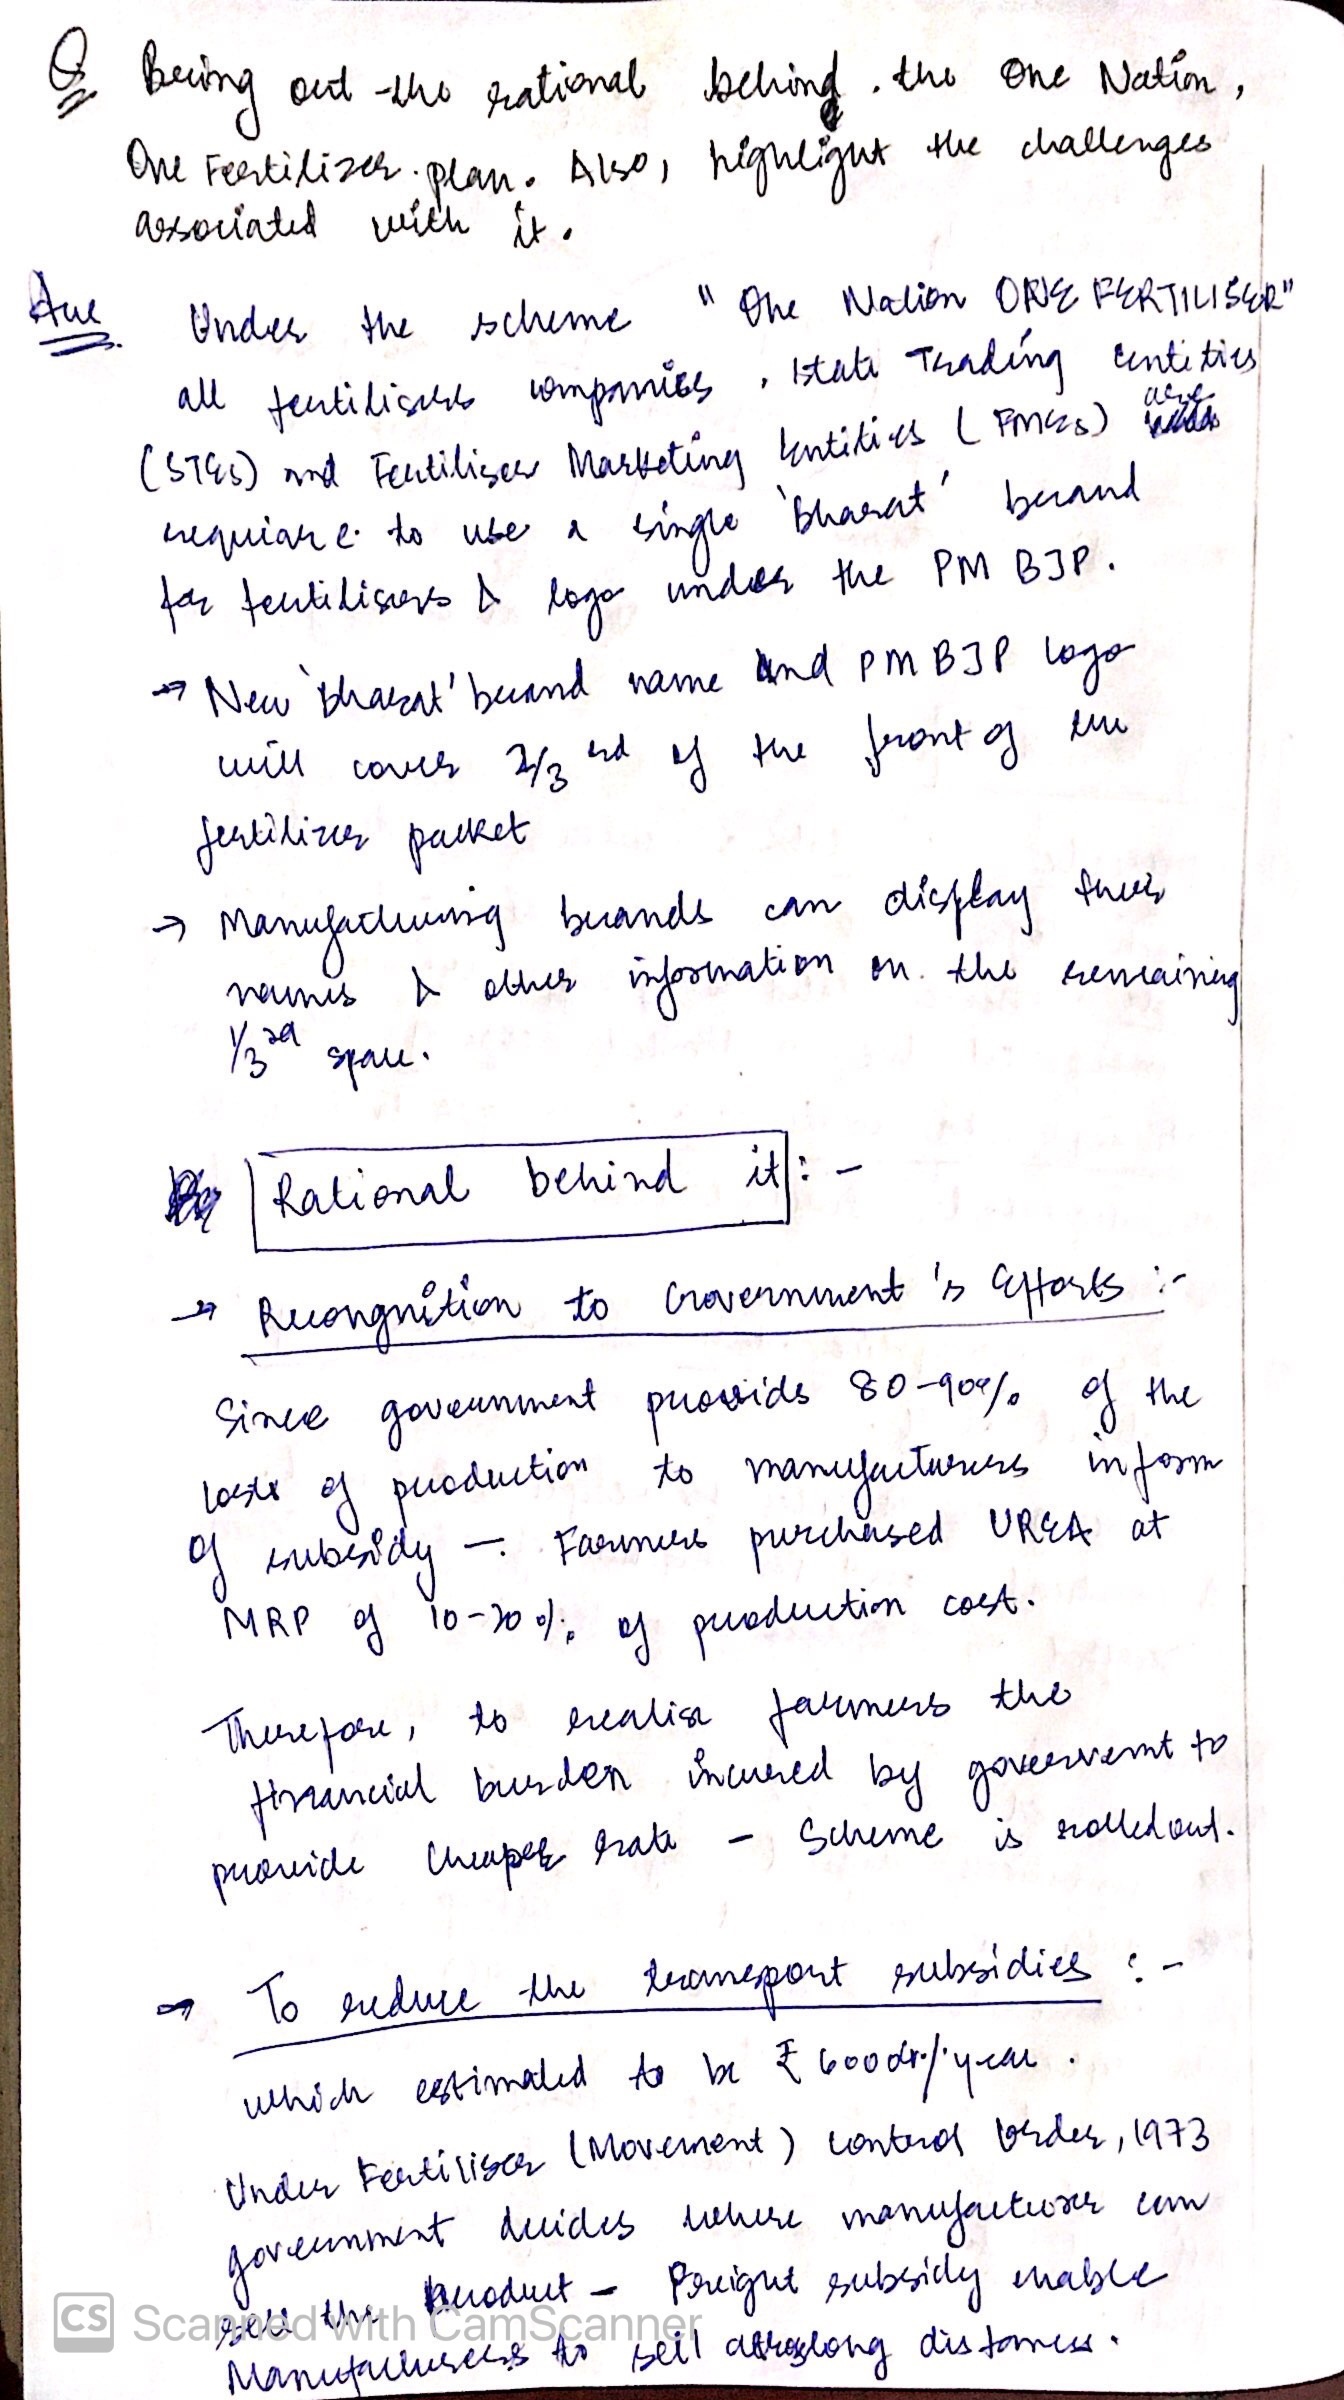 Q Bring out the rational behind. the One Nation,
One Fertilizer. plan. Also, highlight the challenges
associated with it.
Ans Under the scheme " One Nation ONE FERTILISER"
all fertilisers companies, State Trading Entities
(STEs) and Fertiliser Marketing Entities (FMEs) are
require to use a single 'Bharat' brand
for fertilisers & logo under the PM BJP.
→ New 'Bharat' brand name and PM BJP logo
will cover 2/3 rd of the front of the
fertilizer packet
→ Manufacturing brands can display their
names & other information on the remaining
1/3 rd space.
Rational behind it :-
→ Recongnition to Government's Efforts :-
Since government provids 80-90% of the
costs of production to manufacturers in form
of subsidy - Farmers purchased UREA at
MRP of 10-20% of production cost.
Therefore, to realise farmers the
financial burden incurred by government to
provide cheaper rate - Scheme is rolled out.
→ To reduce the transport subsidies :-
which estimated to be ₹ 6000cr./year.
Under Fertiliser (Movement) Control Order, 1973
government decides where manufacturer can
sell the product - Freight subsidy enable
Manufacturers to sell long distances.
CS Scanned with CamScanner